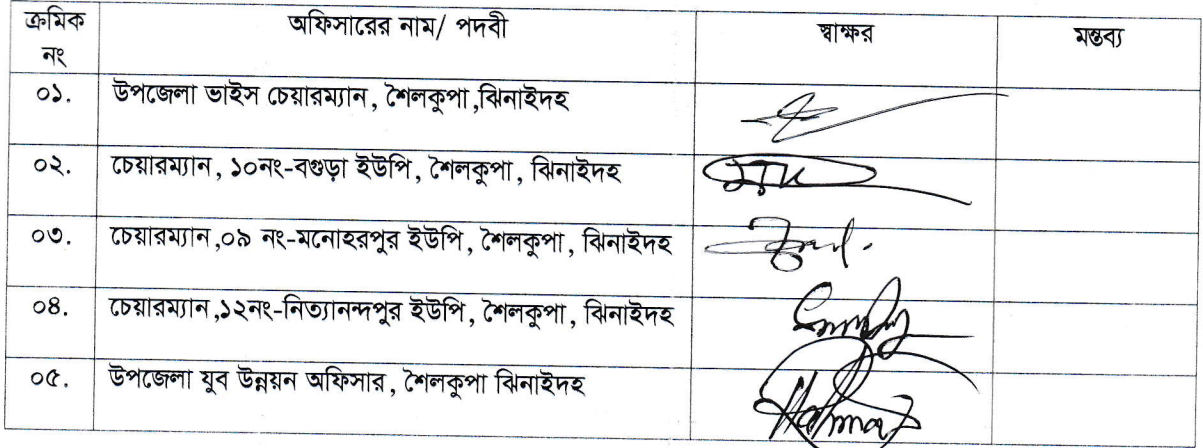 ক্রমিক নং অফিসারের নাম/ পদবী স্বাক্ষর মন্তব্য
০১. উপজেলা ভাইস চেয়ারম্যান, শৈলকুপা,ঝিনাইদহ
০২. চেয়ারম্যান, ১০নং-বগুড়া ইউপি, শৈলকুপা, ঝিনাইদহ
০৩. চেয়ারম্যান,০৯ নং-মনোহরপুর ইউপি, শৈলকুপা, ঝিনাইদহ
০৪. চেয়ারম্যান,১২নং-নিত্যানন্দপুর ইউপি, শৈলকুপা, ঝিনাইদহ
০৫. উপজেলা যুব উন্নয়ন অফিসার, শৈলকুপা ঝিনাইদহ